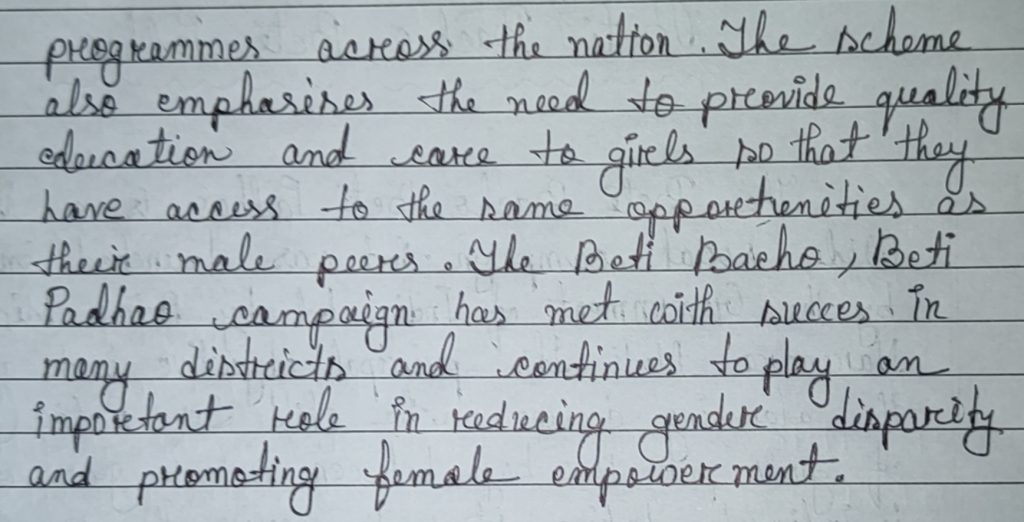 programmes across the nation. The scheme
also emphasises the need to provide quality
education and care to girls so that they
have access to the same opportunities as
their male peers. The Beti Bacho, Beti
Padhao campaign has met with succes in
many districts and continues to play an
important role in reducing gender disparity
and promoting female empowerment.